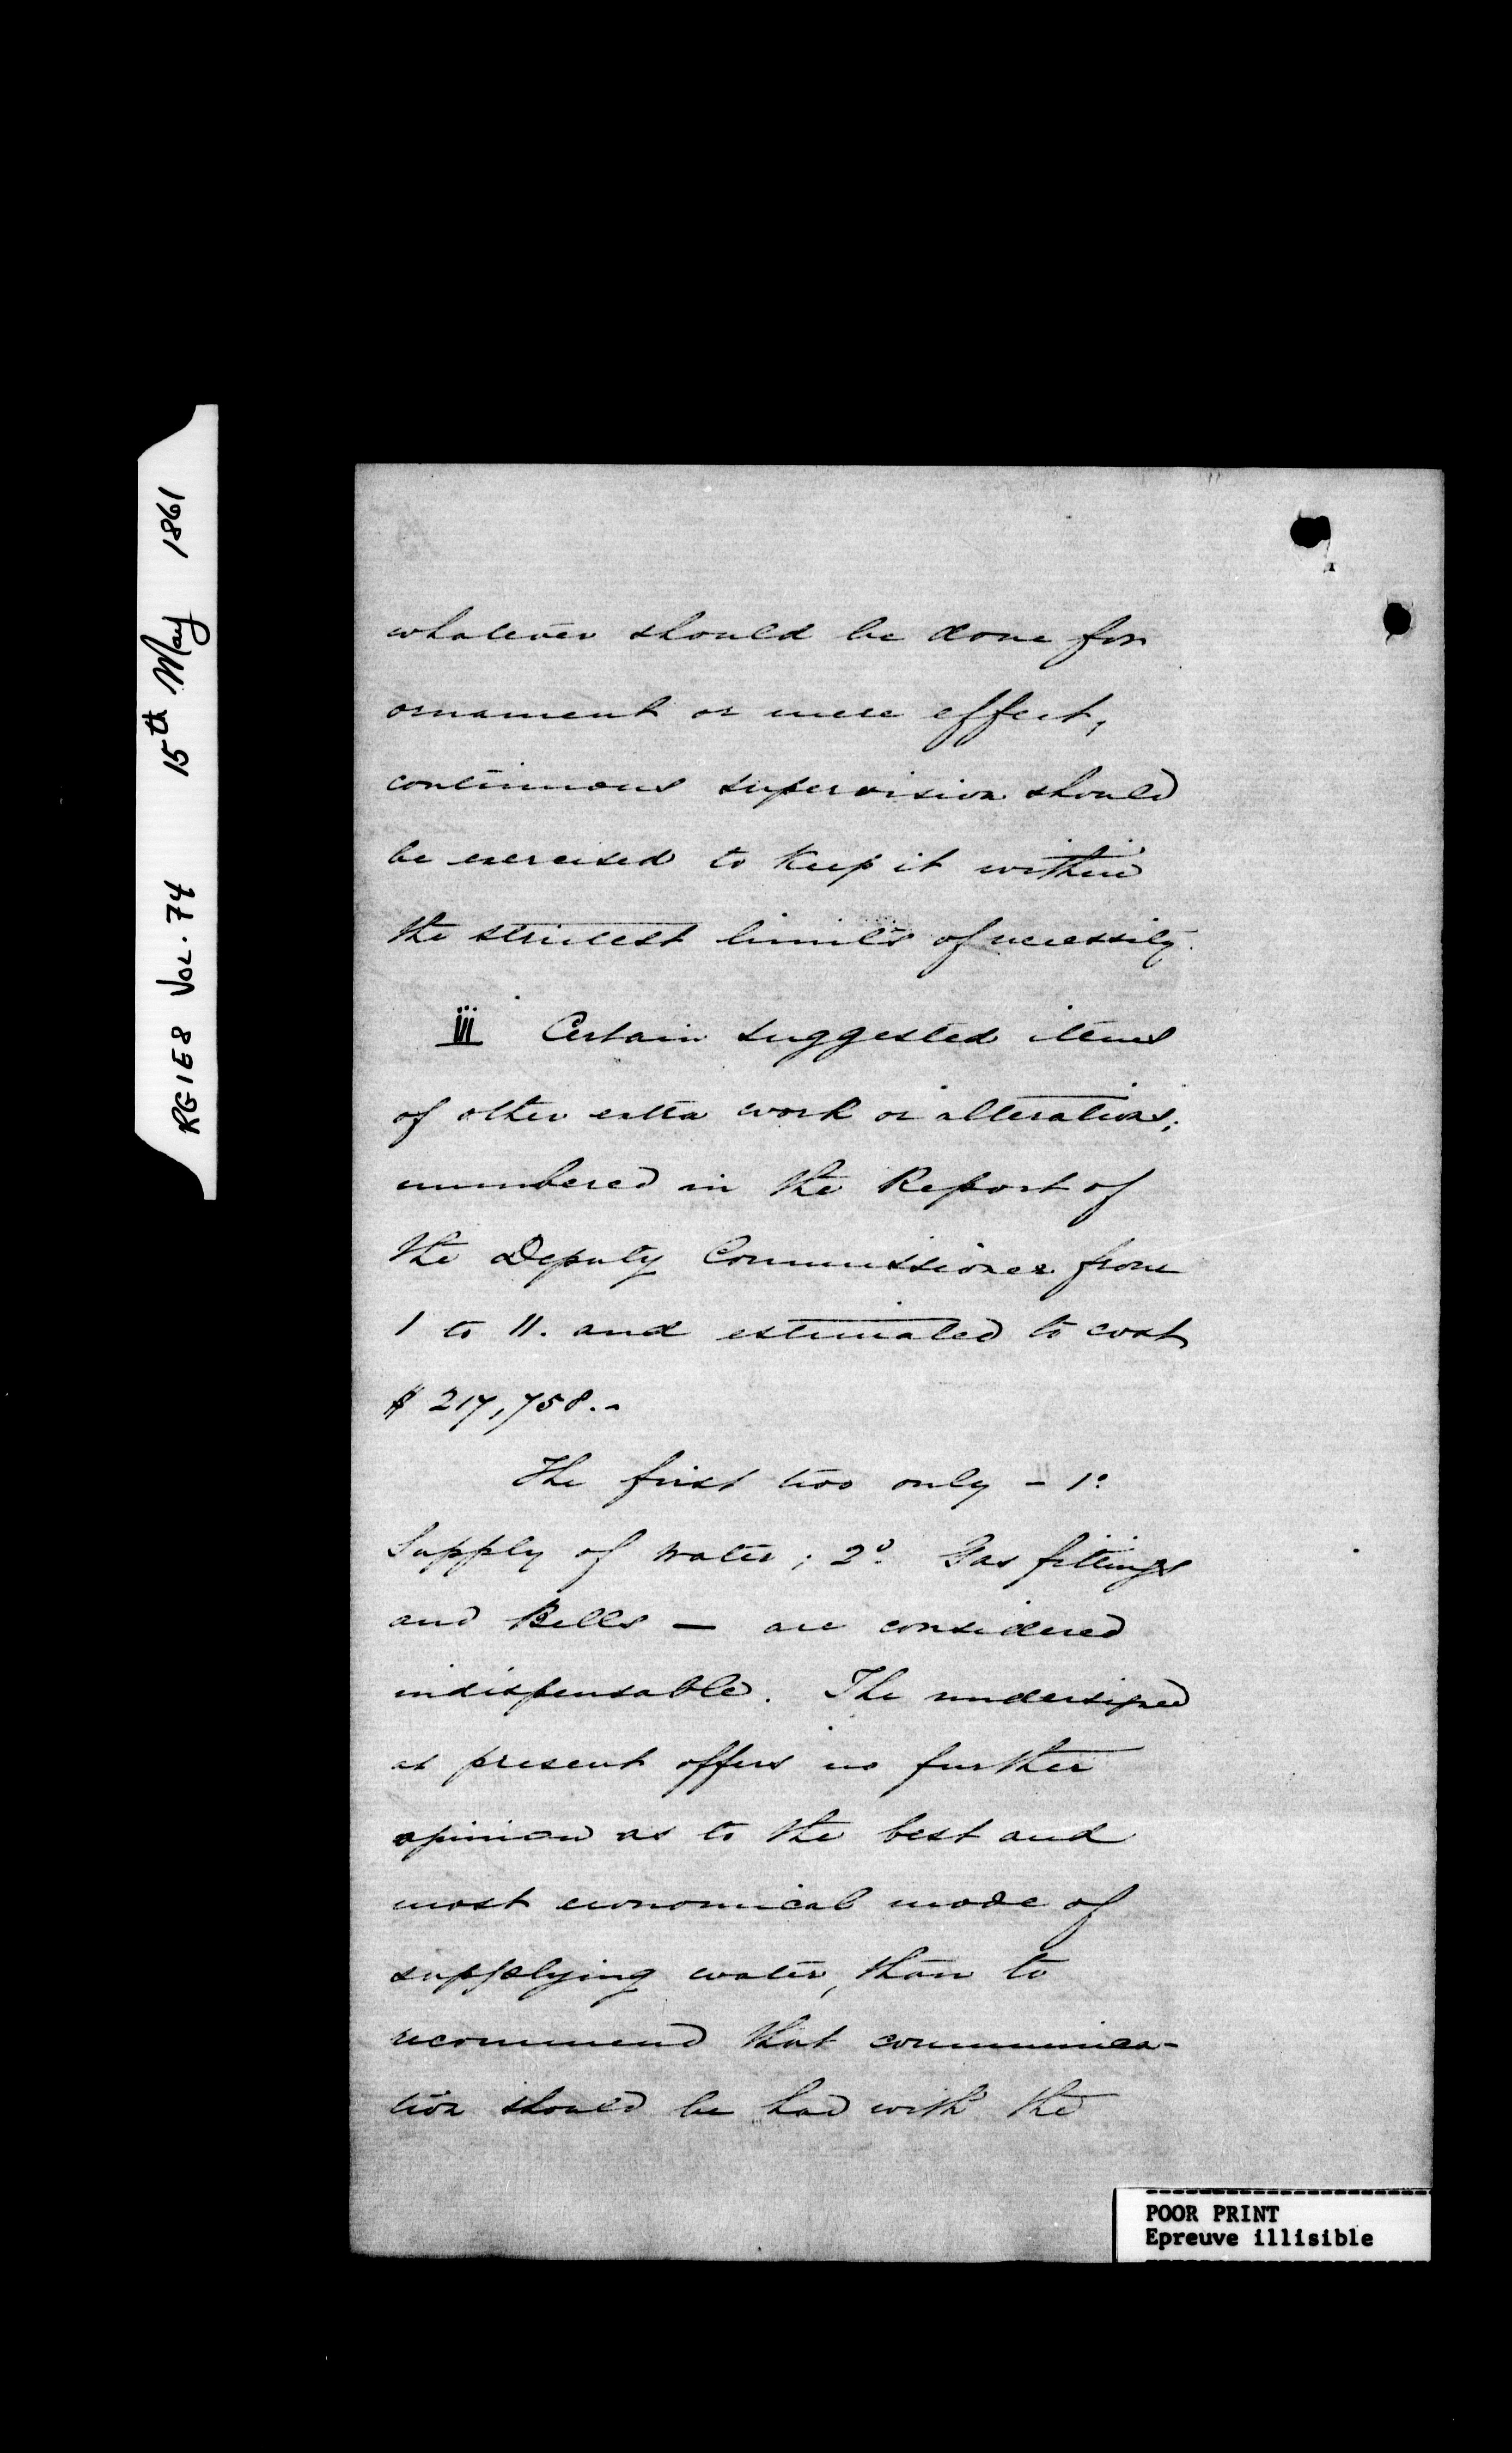 RG1E8 VOL. 74 15th May 1861
whatever should be done for
ornament or mere effect,
continuous supervision should
be exercised to keep it within
the strictest limits of necessity.
iii Certain suggested items
of other extra work or alterations;
numbered in the Report of
the Deputy Commissioner from
1 to 11. and estimated to cost
$ 217,758.-
The first two only - 1º
Supply of water; 2º Gas fittings
and Bells — are considered
indispensable. The undersigned
at present offers no further
opinion as to the best and
most economical mode of
supplying water, than to
recommend that communica-
tion should be had with the
POOR PRINT
Epreuve illisible